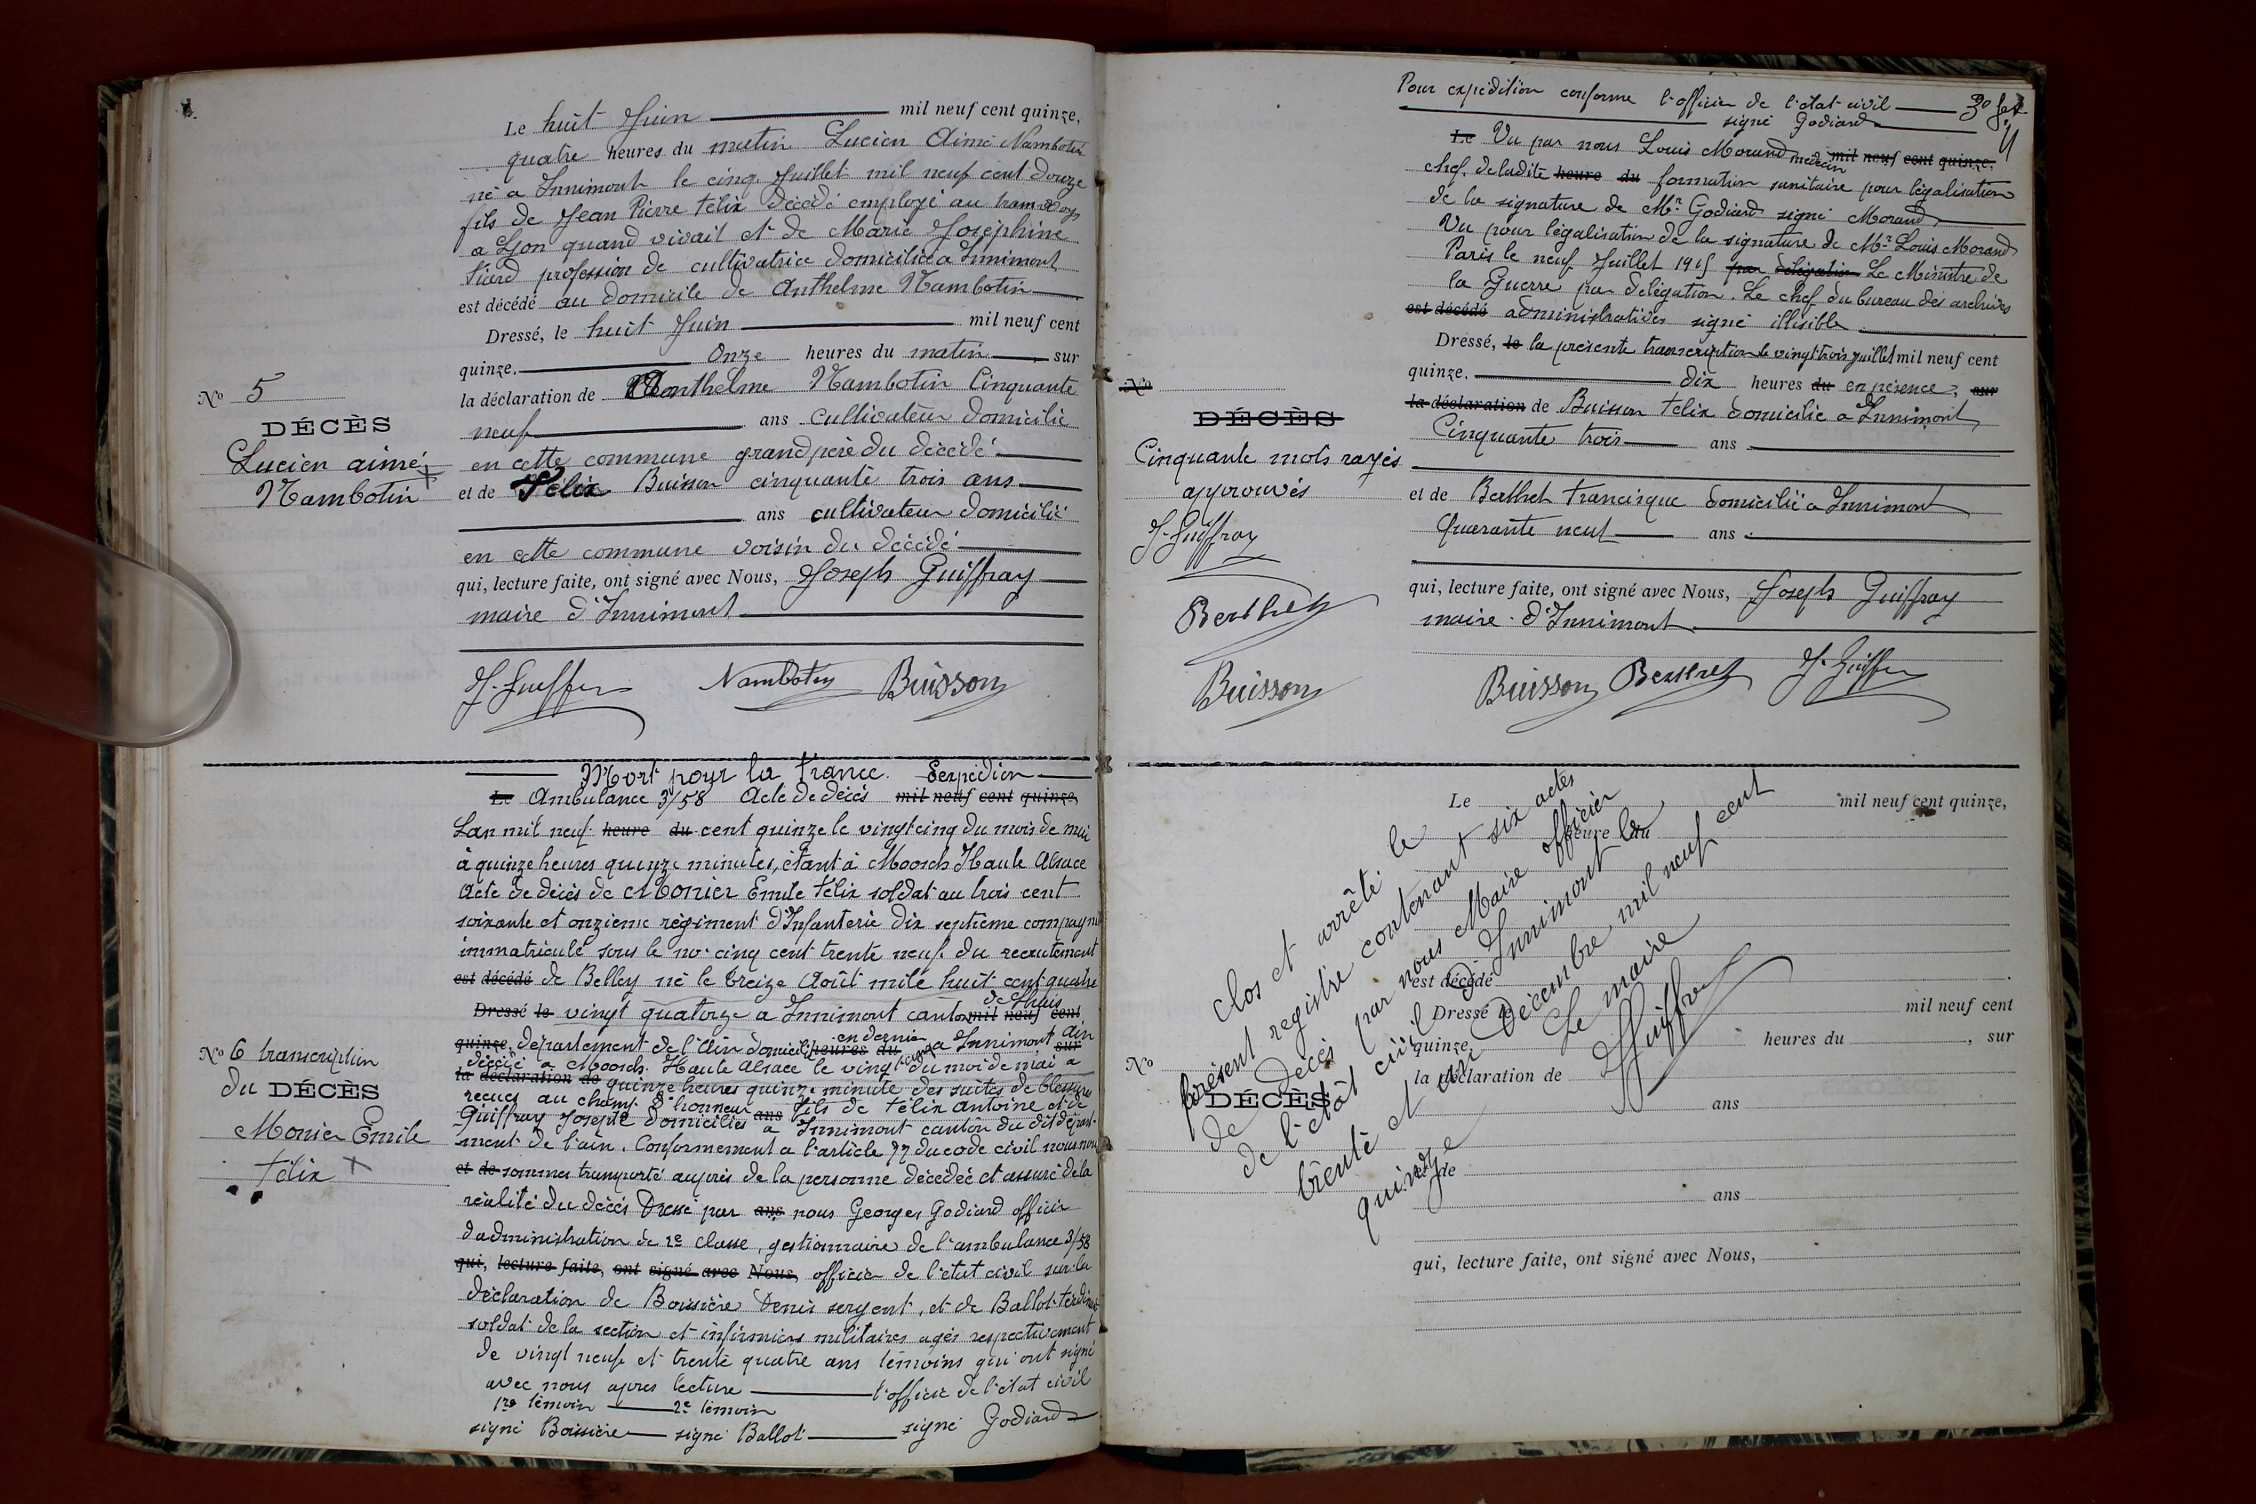 Le huit Juin mil neuf cent quinze,
quatre heures du matin Lucien Aimé Nambotin
né a Innimont le cinq Juillet mil neuf cent douze
fils de Jean Pierre Félix décédé employé au tramways
a Lyon quand vivait et de Marie Joséphine
profession de cultivatrice domiciliée a Innimont
est décédé au domicile de Anthelme Nambotin
Dressé, le huit Juin mil neuf cent
quinze. Onze heures du matin, sur
la déclaration de Anthelme Nambotin Cinquante
neuf ans cultivateur domicilié
en cette commune grand père du décédé
et de Félix Buisson cinquante trois ans
ans cultivateur domicilié
en cette commune voisin du décédé
qui, lecture faite, ont signé avec Nous, Joseph Guiffray
maire d'Innimont
Nº 5
DÉCÈS
Lucien aimé
Nambotin
J. Guiffray Nambotin Buisson
Mort pour la France. Serpédion
Le Ambulance 3/58 Acte de décès mil neuf cent quinze,
Lan mil neuf heure du cent quinze le vingt cinq du mois de mai
à quinze heures quinze minutes, étant à Moosch Haute Alsace
Acte de décès de Monier Emile Félix soldat au trois cent
soixante et onzième régiment d'Infanterie dix septième compagnie
immatriculé sous le no. cinq cent trente neuf du recrutement
est décédé de Belley né le treize Août mile huit cent quatre
de Lhuis
Dressé le vingt quatorze a Innimont canton mil neuf cent
en dernier
quinze. département de l'Ain domicilié heures du a Innimont Ain sur
décédé a Moosch Haute Alsace le vingt cinq du moi de mai a
la déclaration de quinze heures quinze minute des suites de blessures
recues au champ d'honneur ans fils de Félix Antoine et de
Guiffray Josephe domiciliés a Innimont canton du dit départ-
ment de l'ain. Conformement a l'article 77 du code civil nous nous
et de sommes transporté auprès de la personne décédée et assuré de la
réalité du décès Dressé par ans nous Georges Godiard officier
d'administration de 2e classe, gestionnaire de l'ambulance 3/58
qui, lecture faite, ont signé avec Nous, officier de l'état civil sur la
déclaration de Boissière Denis sergent, et de Ballot Ferdinand
soldat de la section et infirmiers militaires agés respectivement
de vingt neuf et trente quatre ans témoins qui ont signé
avec nous apres lecture l'officier de l'état civil
1re témoin 2e témoin
signé Boissière signé Ballot signé Godiard
Nº 6 transcription
du DÉCÈS
Monier Emile
Félix
Pour expédition conforme l'officier de l'état civil
signé Godiard
Le Vu par nous Louis Morand médecin mil neuf cent quinze,
chef. de ladite heure du formation sanitaire pour légalisation
de la signature de Mr Godiard signé Morand
Vu pour légalisation de la signature de Mr Louis Morand
Paris le neuf Juillet 1915 par délégation Le Ministre de
la Guerre par délégation. Le chef du bureau des archives
est décédé administratives signé illisible
Dressé, le la présente transcription le vingt trois juillet mil neuf cent
quinze. dix heures du en présence, sur
la déclaration de Buisson Félix domicilié a Innimont
Cinquante trois ans
et de Berthet Francisque domicilié a Innimont
Quarante neuf ans
qui, lecture faite, ont signé avec Nous, Joseph Guiffray
maire d'Innimont
Nº
DÉCÈS
Cinquante mots rayés
approuvés
J. Guiffray
Berthet
Buisson
Buisson Berthet J. Guiffray
Le mil neuf cent quinze,
heure du
est décédé
Dressé le mil neuf cent
quinze. heures du , sur
la déclaration de
ans
et de
ans
qui, lecture faite, ont signé avec Nous,
Nº
DÉCÈS
Clos et arrêté le
présent registre contenant six actes
de décès par nous Maire officier
de l'état civil d'Innimont le
trente et un Décembre mil neuf cent
quinze
Le maire
J Guiffray